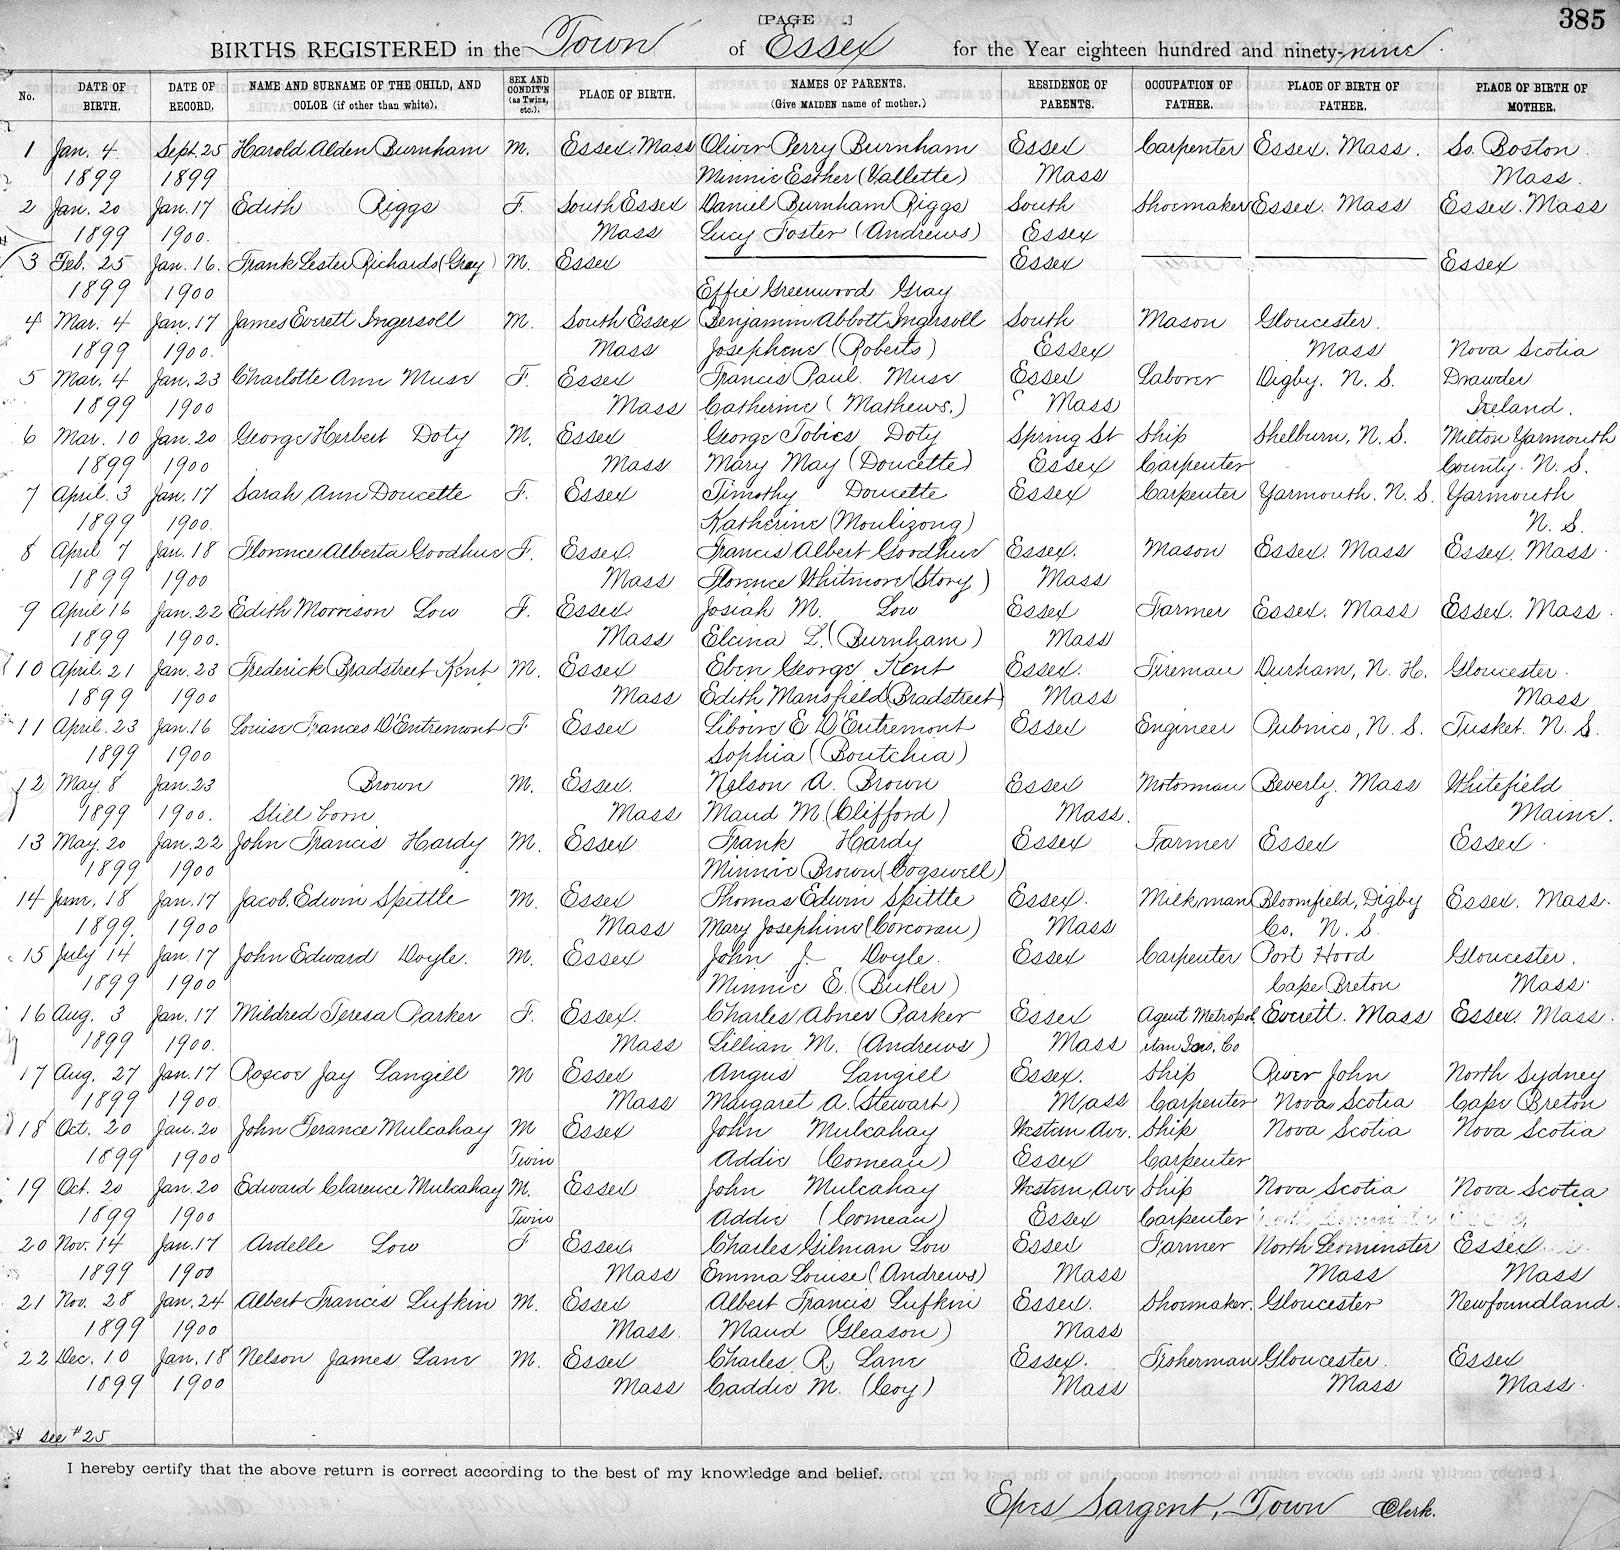 [PAGE .]
385
BIRTHS REGISTERED in the Town of Essex for the Year eighteen hundred and ninety-nine.
No. DATE OF BIRTH. DATE OF RECORD. NAME AND SURNAME OF THE CHILD, AND COLOR (if other than white). SEX AND CONDIT'N (as Twins, etc.). PLACE OF BIRTH. NAMES OF PARENTS. (Give MAIDEN name of mother.) RESIDENCE OF PARENTS. OCCUPATION OF FATHER. PLACE OF BIRTH OF FATHER. PLACE OF BIRTH OF MOTHER.
1 Jan. 4 Sept. 25 Harold Alden Burnham M. Essex. Mass Oliver Perry Burnham Essex Carpenter Essex. Mass. So. Boston
1899 1899 Minnie Esther (Vallette) Mass Mass.
2 Jan. 20 Jan. 17 Edith Riggs F. South Essex Daniel Burnham Riggs South Shoemaker Essex. Mass Essex. Mass
1899 1900. Mass Lucy Foster (Andrews) Essex
3 Feb. 25 Jan. 16. Frank Lester Richards (Gray) M. Essex Essex Essex
1899 1900 Effie Greenwood Gray
4 Mar. 4 Jan. 17 James Everett Ingersoll M. South Essex Benjamin Abbott Ingersoll South Mason Gloucester.
1899 1900. Mass Josephene (Roberts) Essex Mass Nova Scotia
5 Mar. 4 Jan. 23 Charlotte Ann Muse F. Essex Francis Paul. Muse Essex Laborer Digby. N. S. Drawder
1899 1900 Mass Catherine (Mathews.) Mass Ireland.
6 Mar. 10 Jan. 20 George Herbert Doty M. Essex George Tobics Doty Spring St Ship Shelburn, N. S. Milton Yarmouth
1899 1900 Mass Mary May (Doucette) Essex Carpenter County. N. S.
7 April. 3 Jan. 17 Sarah Ann Doucette F. Essex Timothy Doucette Essex Carpenter Yarmouth. N. S. Yarmouth
1899 1900. Katherine (Moulizong) N. S.
8 April 7 Jan. 18 Florence Alberta Goodhue F. Essex. Francis Albert Goodhue Essex. Mason Essex. Mass Essex. Mass.
1899 1900 Mass Florence Whitmore (Story) Mass
9 April 16 Jan. 22 Edith Morrison Low F. Essex Josiah M. Low Essex Farmer Essex. Mass Essex. Mass.
1899 1900. Mass Elcina L. (Burnham) Mass
10 April 21 Jan. 23 Frederick Bradstreet Kent M. Essex Eben George Kent Essex. Fireman Durham, N. H. Gloucester.
1899 1900 Mass Edith Mansfield (Bradstreet) Mass Mass
11 April. 23 Jan. 16 Louise Frances D'Entremont F Essex Liboire E. D'Entremont Essex Engineer Pubnico, N. S. Tusket. N. S.
1899 1900 Sophia (Boutchia)
12 May 8 Jan. 23 Brown M. Essex. Nelson A. Brown Essex Motorman Beverly. Mass Whitefield
1899 1900. Still born Mass Maud M (Clifford) Mass. Maine.
13 May. 20 Jan. 22 John Francis Hardy M. Essex Frank Hardy Essex Farmer Essex Essex.
1899 1900 Minnie Brown (Cogswell)
14 June. 18 Jan. 17 Jacob. Edwin Spittle M. Essex Thomas Edwin Spittle Essex. Milkman Bloomfield, Digby Essex. Mass.
1899. 1900 Mass Mary Josephine (Corcoran) Mass Co. N. S.
15 July 14 Jan. 17 John Edward Doyle. M. Essex John J. Doyle. Essex Carpenter Port Hood Gloucester.
1899 1900 Minnie E. (Butler) Cape Breton Mass.
16 Aug. 3 Jan. 17 Mildred Teresa Parker F. Essex. Charles Abner Parker Essex Agent Metropol Everett. Mass Essex. Mass.
1899 1900. Mass Lillian M. (Andrews) Mass itan Ins. Co
17 Aug. 27 Jan. 17 Roscoe Jay Langill M Essex Angus Langill Essex. Ship River John North Sydney
1899 1900. Mass Margaret A. (Stewart) Mass Carpenter Nova Scotia Cape Breton
18 Oct. 20 Jan. 20 John Terance Mulcahay M Essex John Mulcahay Western Ave. Ship Nova Scotia Nova Scotia
1899 1900 Twin Addie (Comeau) Essex Carpenter
19 Oct. 20 Jan. 20 Edward Clarence Mulcahay M. Essex John Mulcahay Western Ave Ship Nova Scotia Nova Scotia
1899 1900 Twin Addie (Comeau) Essex Carpenter
20 Nov. 14 Jan. 17 Ardelle Low F Essex Charles Gilman Low Essex Farmer North Leominster Essex
1899 1900 Mass Emma Louise (Andrews) Mass Mass Mass
21 Nov. 28 Jan. 24 Albert Francis Lufkin M. Essex Albert Francis Lufkin Essex. Shoemaker. Gloucester Newfoundland
1899 1900 Mass. Maud (Gleason) Mass
22 Dec. 10 Jan. 18 Nelson James Lane M. Essex Charles R. Lane Essex. Fisherman Gloucester. Essex
1899 1900 Mass Caddie M. (Coy) Mass Mass Mass.
see #25
I hereby certify that the above return is correct according to the best of my knowledge and belief.
Epes Sargent, Town Clerk.